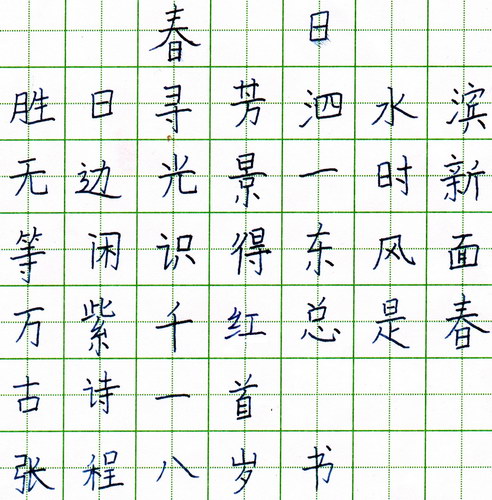 春日
胜日寻芳泗水滨
无边光景一时新
等闲识得东风面
万紫千红总是春
古诗一首
张程八岁书